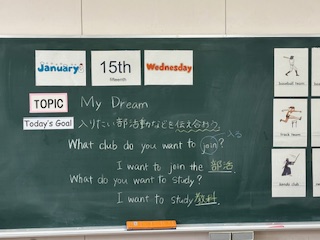 January
15th
fifteenth
Wednesday
TOPIC My Dream
Today's Goal 入りたい部活動などを伝え合おう。
入る
What club do you want to join?
I want to join the 部活.
What do you want to study?
I want to study 教科.
baseball team
track team
kendo club